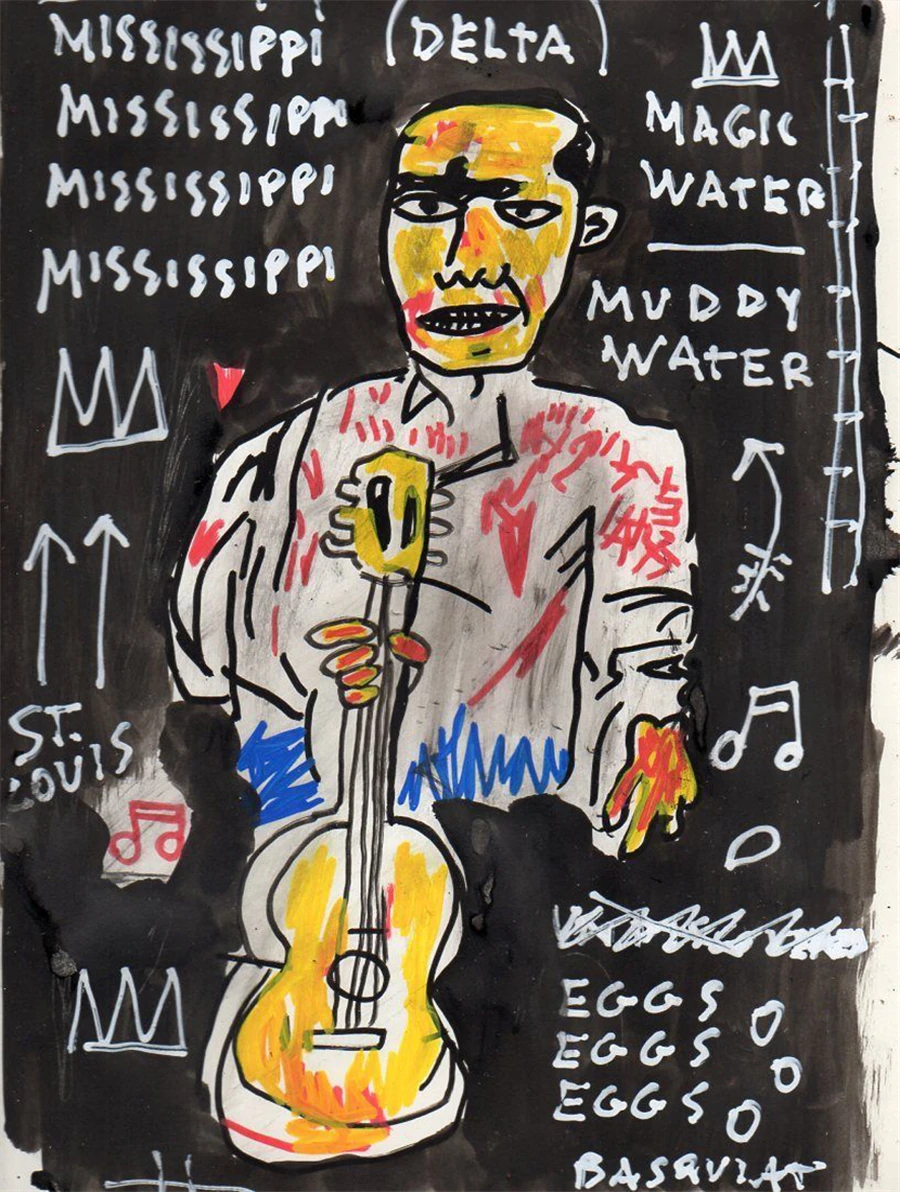 MISSISSIPPI (DELTA)
MISSISSIPPI
MISSISSIPPI
MISSISSIPPI
MAGIC
WATER
MUDDY
WATER
ST.
LOUIS
EGGS
EGGS
EGGS
BASQUIAT